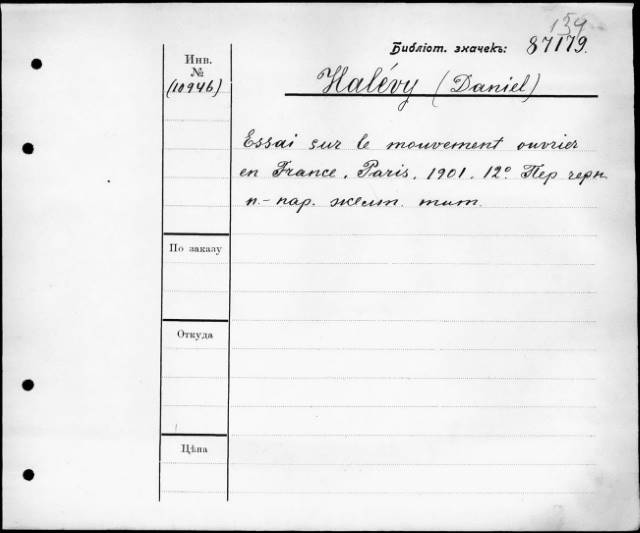 134
Библіот. значекъ: 87179.
Инв.
№
(10946)
Halévy (Daniel)
Essai sur le mouvement ouvrier
en France. Paris. 1901. 12º. Пер черн.
п.-пар. желт. тит.
По заказу
Откуда
Цѣна